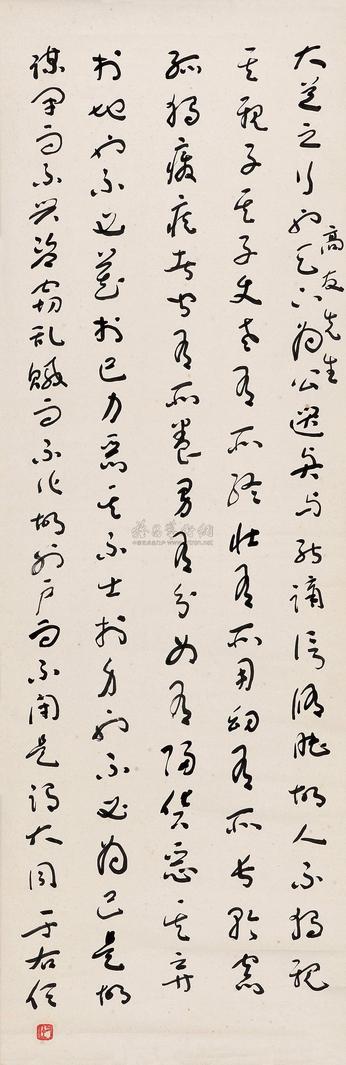 大道之行也天下為公選賢與能講信修睦故人不獨親
高友先生
其親子其子使老有所終壯有所用幼有所長矜寡
孤獨廢疾者皆有所養男有分女有歸貨惡其棄
於地也不必藏於己力惡其不出於身也不必為己是故
謀閉而不興盜竊乱賊而不作故外戶而不閉是謂大同 于右任